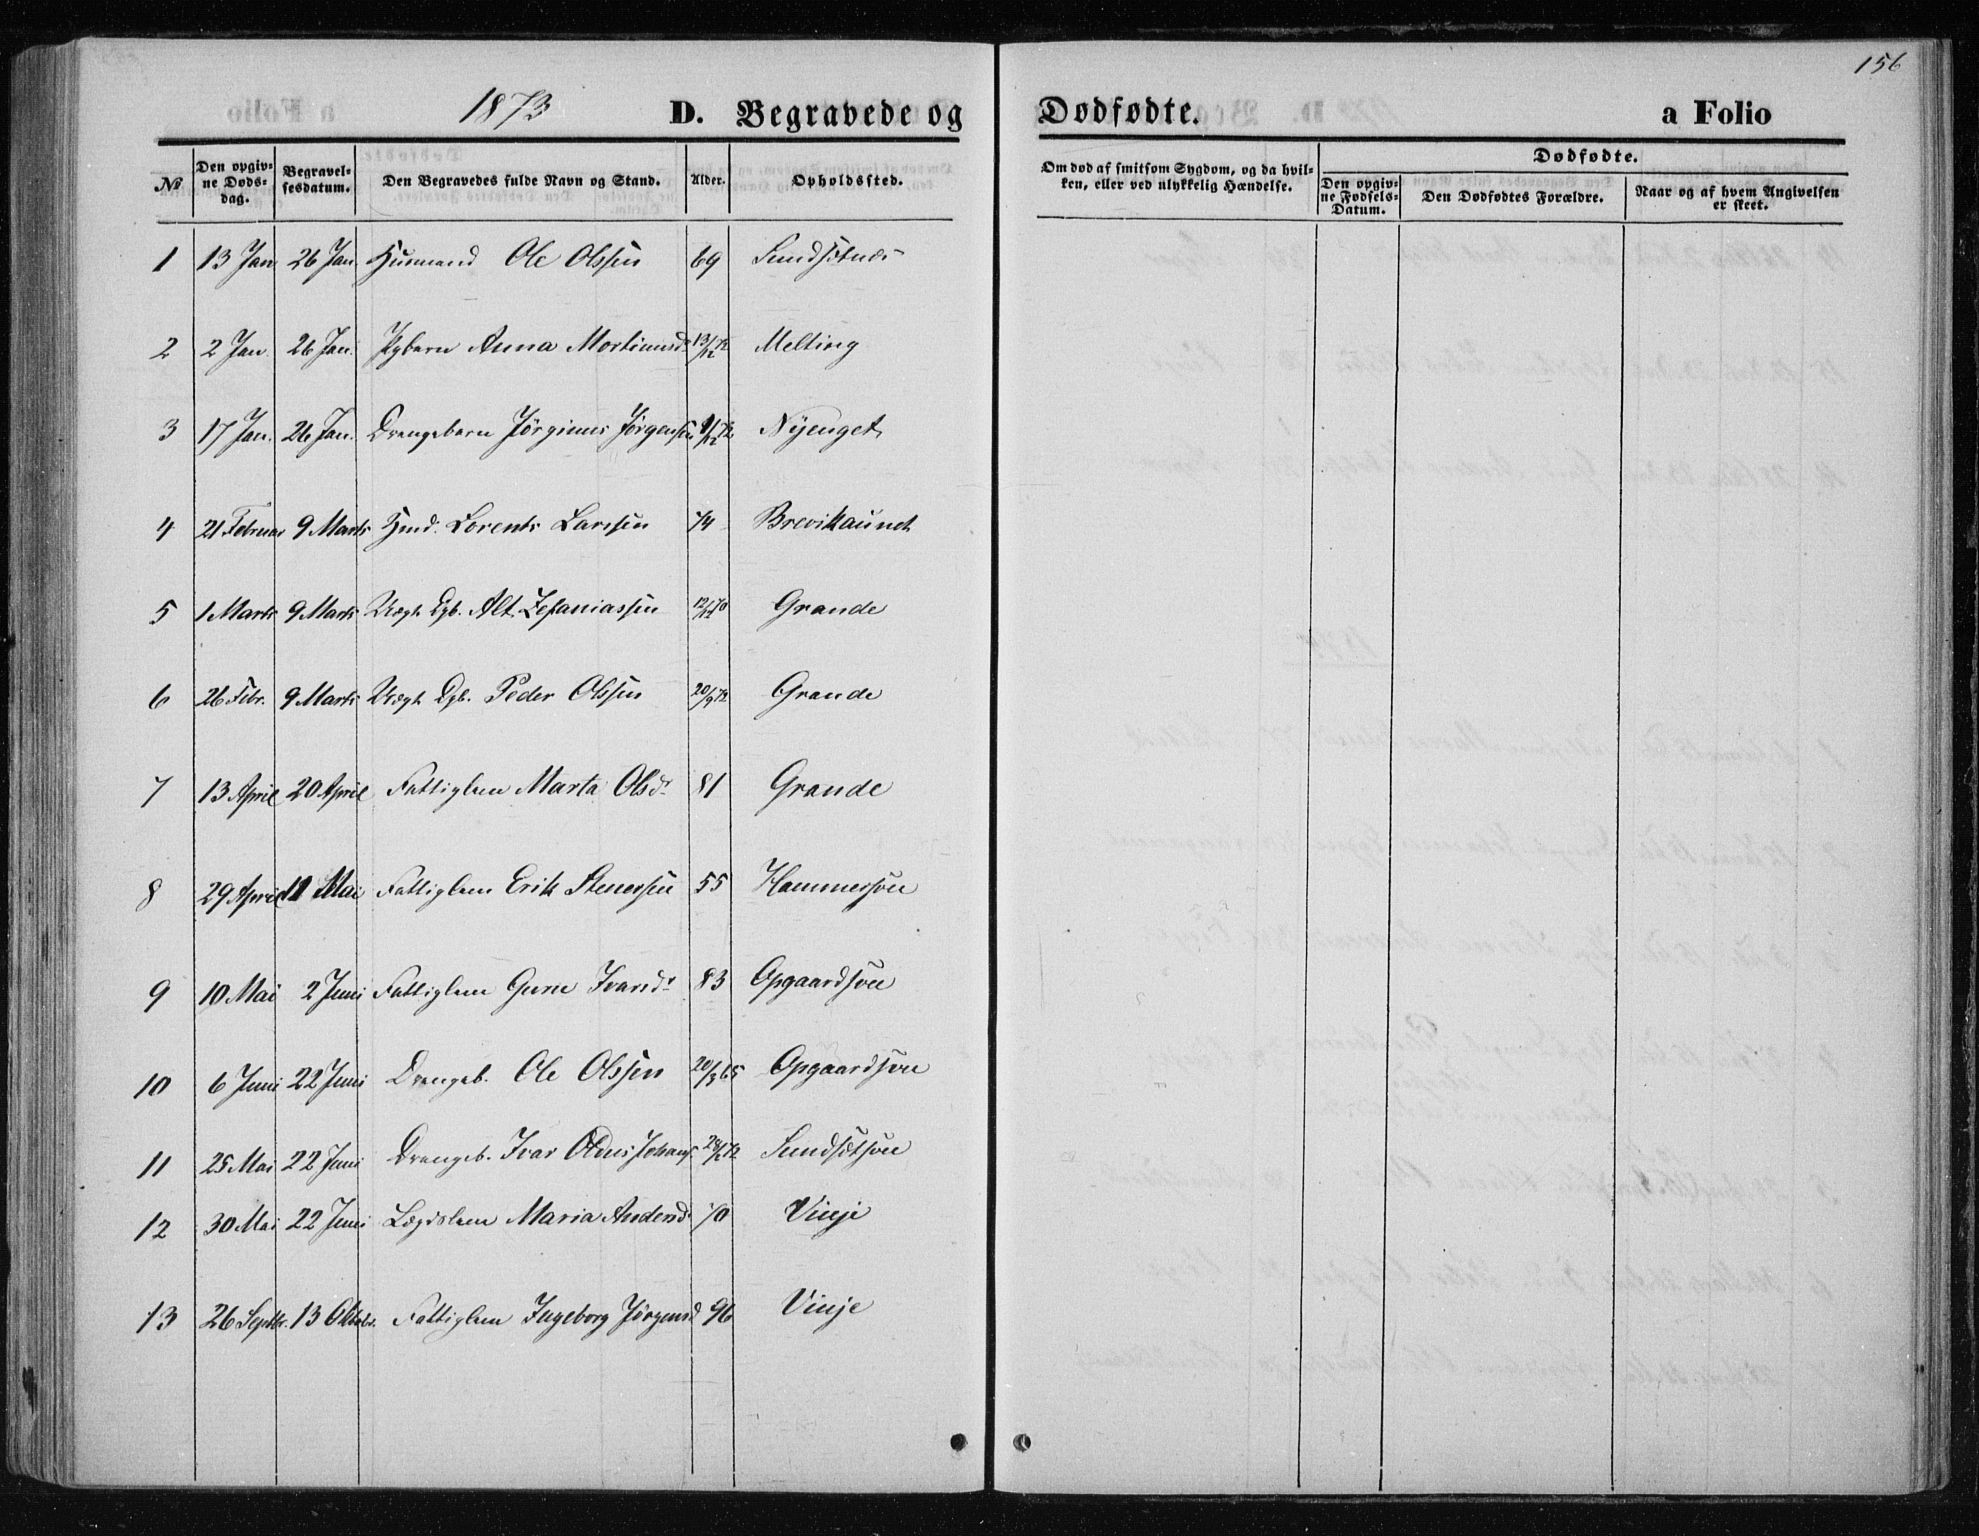 156
1873 D. Begravede og Dødfødte. a Folio
No Den opgivne Døds-dag. Begravelsesdatum. Den Begravedes fulde Navn og Stand. Alder. Opholdssted. Om død af smitsom Sygdom, og da hvilken, eller ved ulykkelig Hændelse. Dødfødte. Den opgivne Fødsels-Datum. Den Dødfødtes Forældre. Naar og af hvem Angivelsen er skeet.
1 13 Jan 26 Jan. Husmand Ole Olssen 69 Sundsetnæs
2 2 Jan. 26 Jan. Pigebarn Anna Mortinusdr 13/12 72 Melting
3 17 Jan. 26 Jan. Drengebarn Jørginus Jørgensen 9/12 72 Nyenget
4 21 Februar 9 Marts Hmd. Lorents Larssen 74 Brevikaunet
5 1 Marts 9 Marts Uægt. Dgb. Alt. Zefaniassen 12/12 70 Grande
6 26 Febr. 9 Marts Uægt Dgb. Peder Olssen 20/9 72 Grande
7 13 April 20 April Fattiglem Marta Olsdr 81 Grande
8 29 April 11 Mai Fattiglem Erik Stenersen 55 Hammersøen
9 10 Mai 2 Juni Fattiglem Guru Ivarsdr 83 Opgaardsøen
10 6 Juni 22 Juni Drengeb. Ole Olssen 20/3 65 Opgaardsøen
11 25 Mai 22 Juni Drengeb. Ivar Johans. 72 Sundsetsøen
12 30 Mai 22 Juni Lægdslem Maria Andersd. 70 Vinje
13 26 Septbr. 13 Oktobr. Fattiglem Ingeborg Jørgensd 96 Vinje